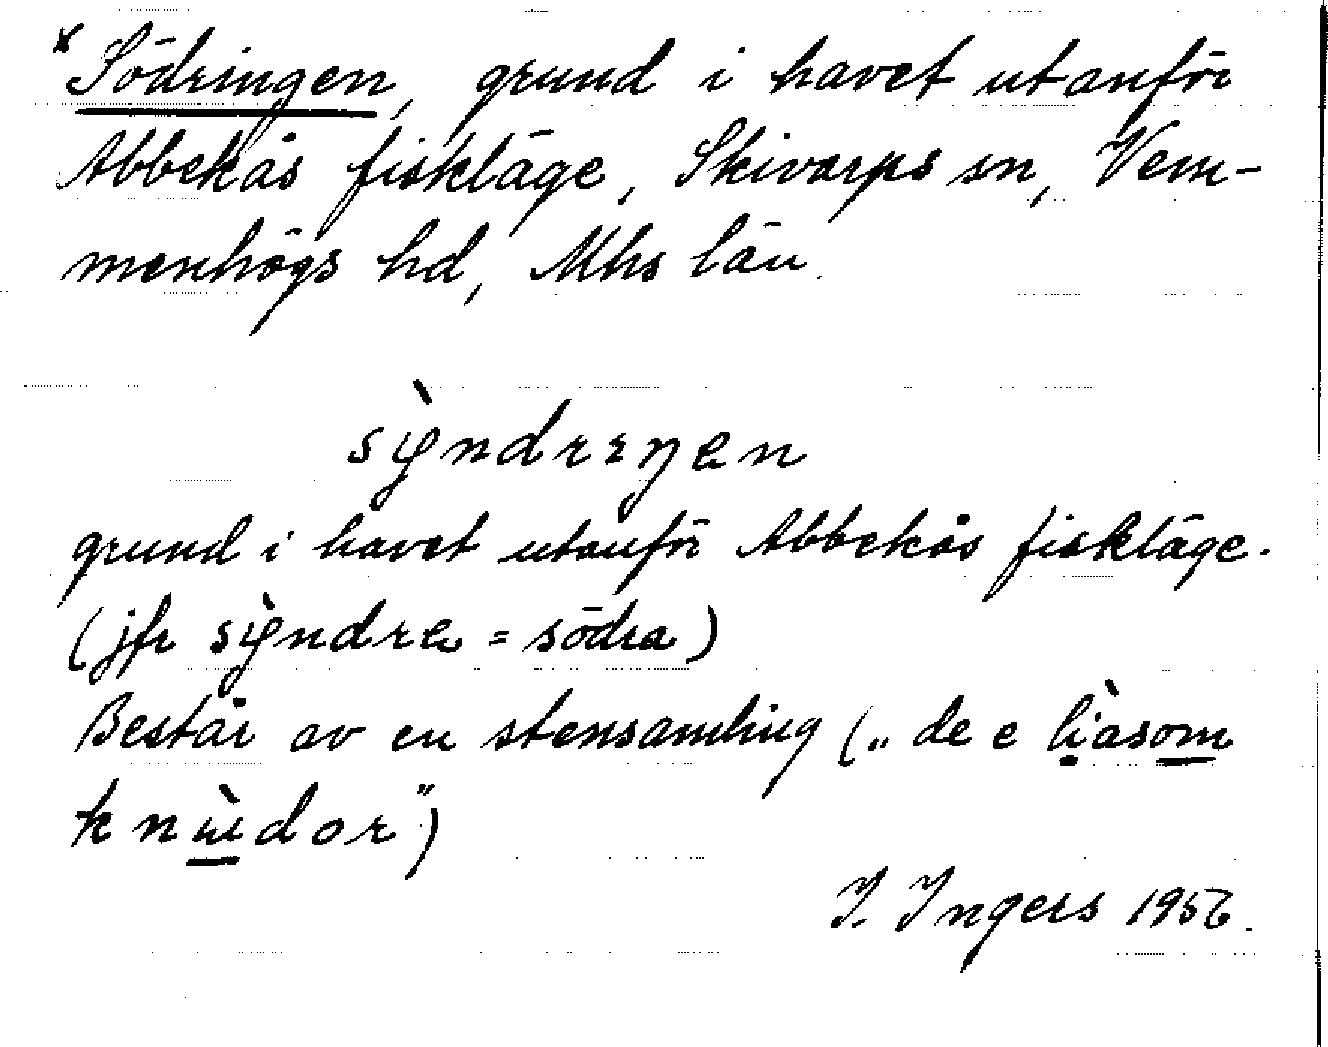 *Södringen, grund i havet utanför
Abbekås fiskläge, Skivarps sn, Vem-
menhögs hd, Mhs län.
sỳndrɪŋen
grund i havet utanför Abbekås fiskläge.
(jfr sỳndre = södra)
Består av en stensamling („de e lìasom
knùdor")
I. Ingers 1956.